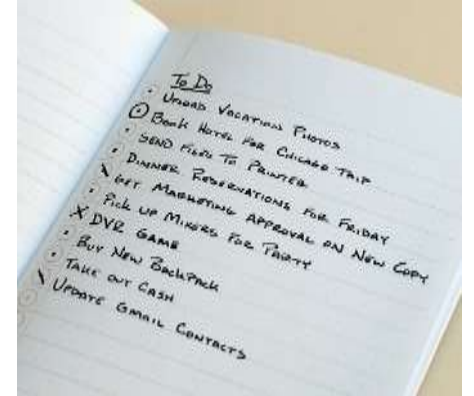 To Do
Upload Vacation Photos
Book Hotel for Chicago Trip
Send Files To Printer
Dinner Reservations for Friday
Get Marketing Approval on New Copy
Pick up Mixers for Party
DVR Game
Buy New Backpack
Take out Cash
Update Gmail Contacts